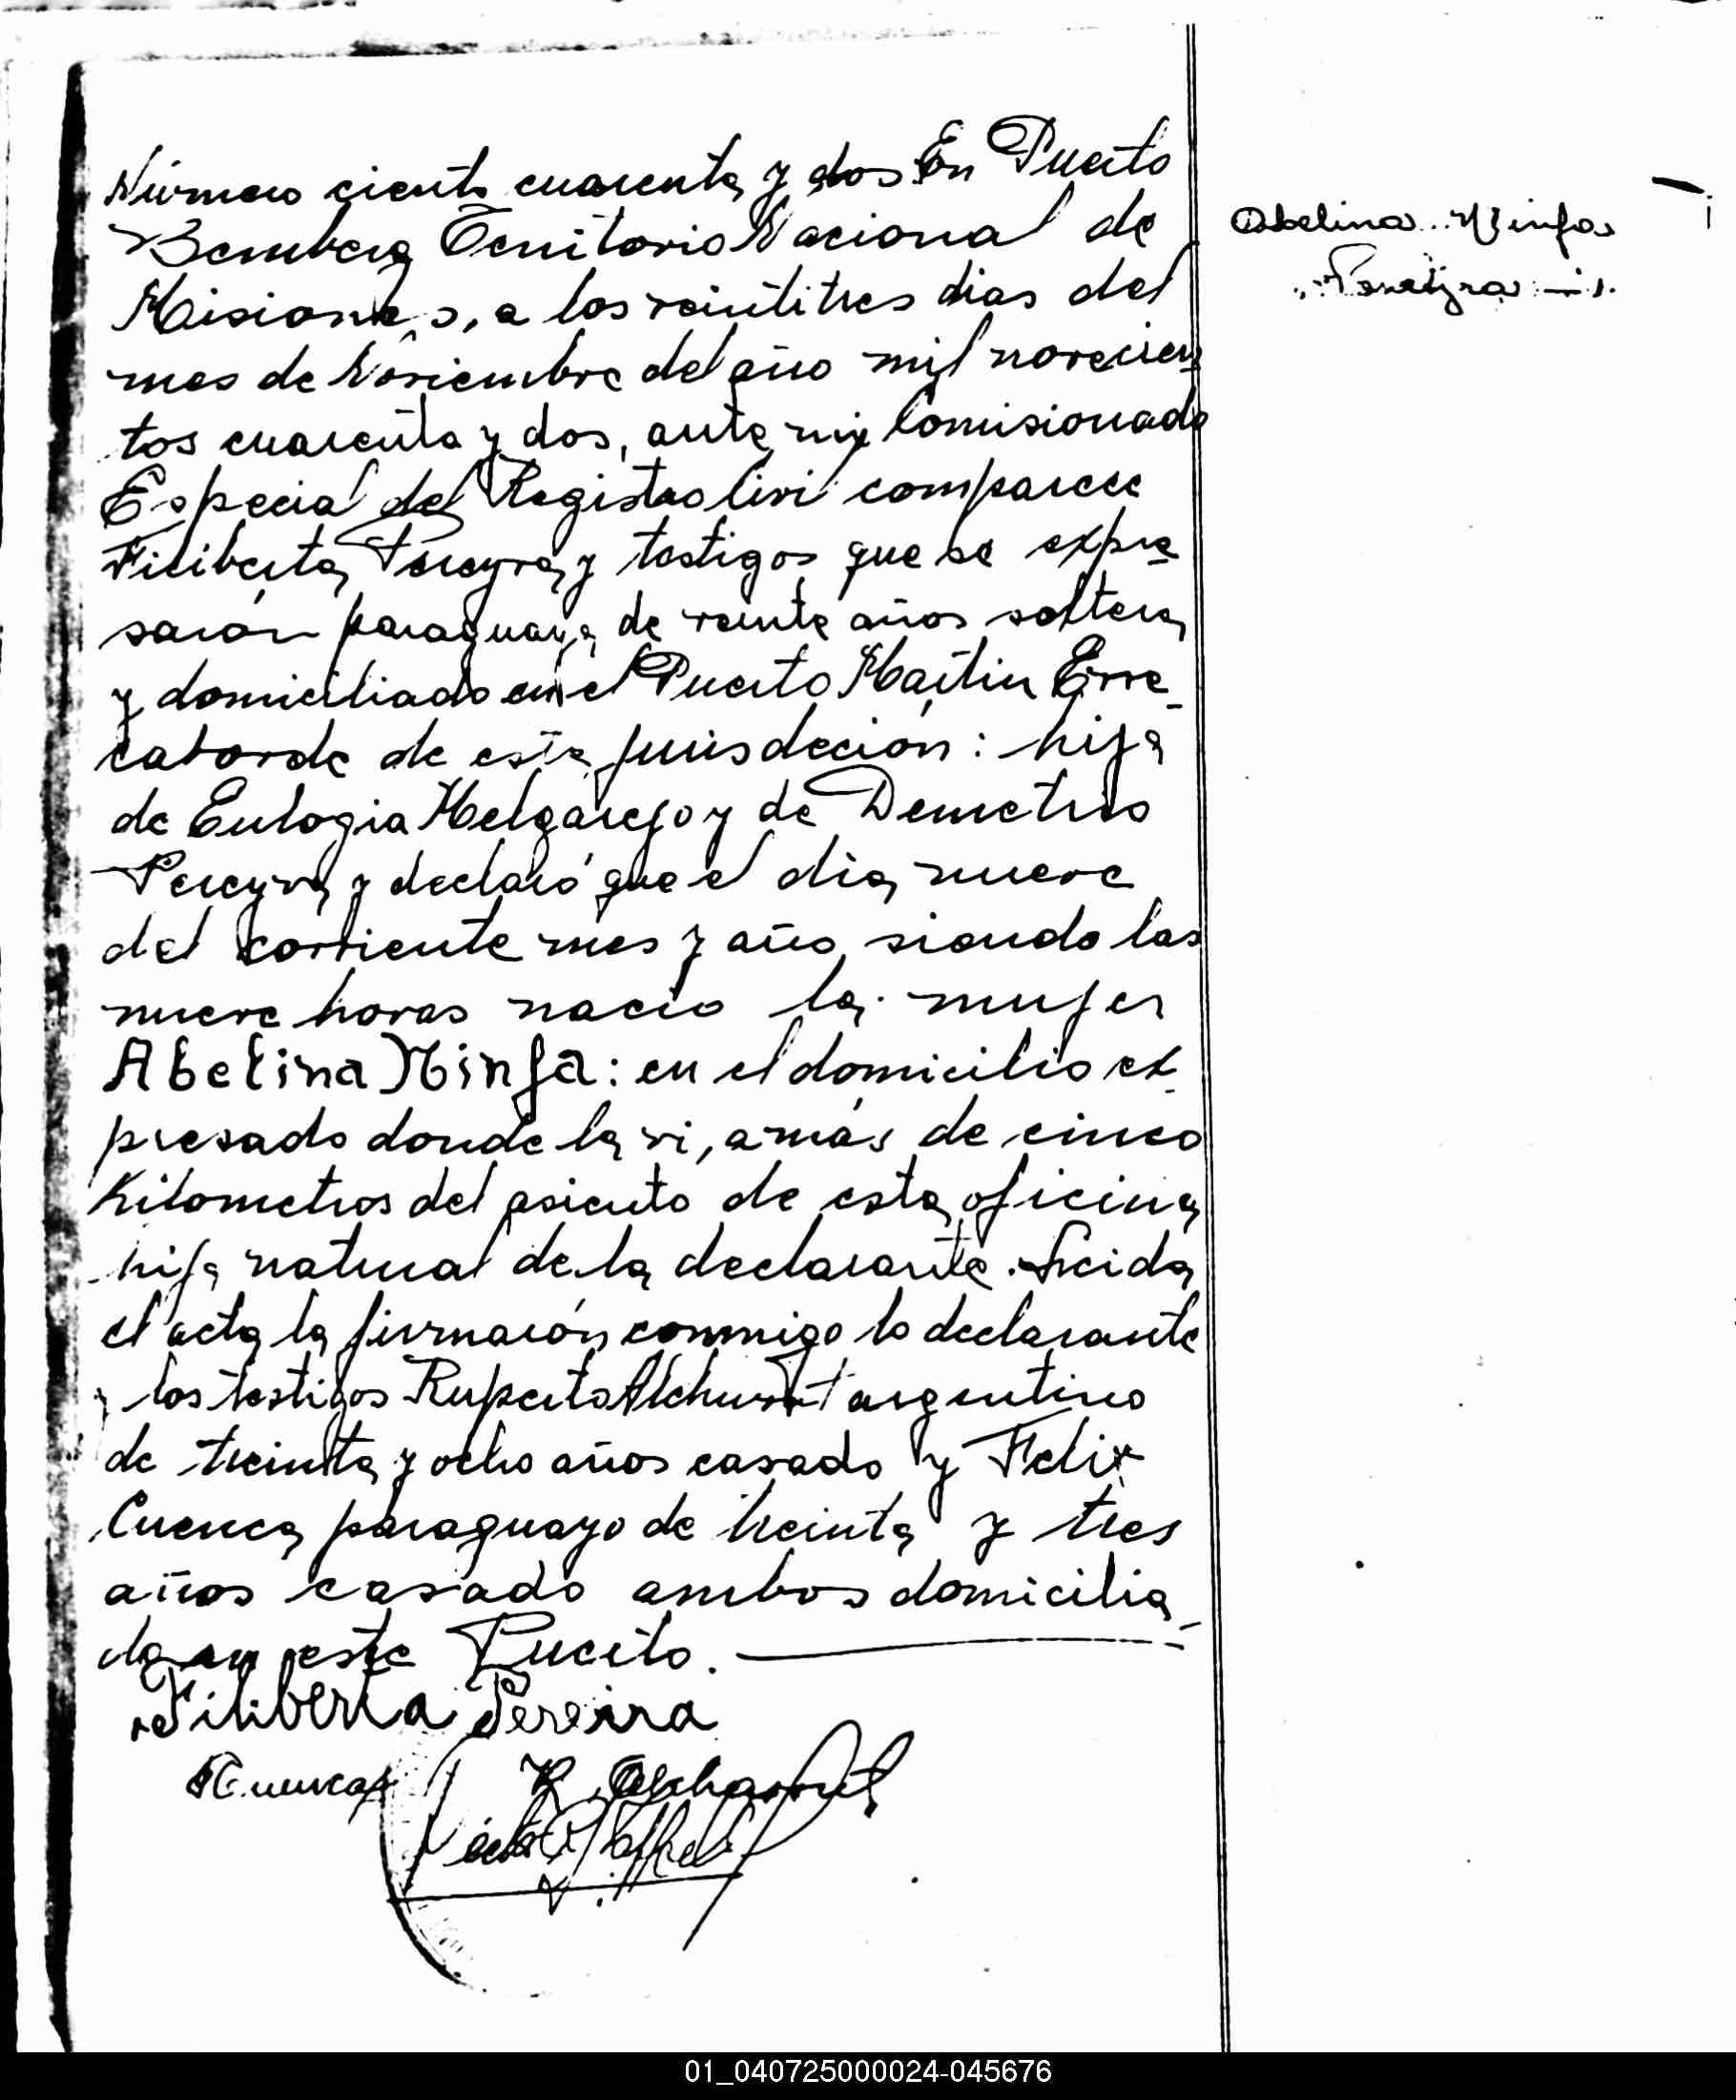 Número ciento cuarenta y dos En Puerto
Bemberg Territorio Nacional de
Misiones, a los veintitres dias del
mes de Noviembre del año mil novecien
tos cuarenta y dos, ante mi Comisionado
Especial del Registro Civi comparece
Filiberta Pereyra y testigos que se expre
sarán paraguaya de veinte años soltera
y domiciliado en el Puerto Martin Erre_
caborde de esta jurisdeción: hija
de Eulogia Melgarejo y de Demetrio
Pereyra y declaró que el dia nueve
del corriente mes y año siendo las
nueve horas nacio la mujer
Abelina Ninfa: en el domicilio ex
presado donde la vi, a más de cinco
Kilometros del asiento de esta oficina
hija natural de la declarante. Leida
el acta la firmarón conmigo lo declarante
y los testigos Ruperto Alchurrut argentino
de treinta y ocho años casado y Felix
Cuenca paraguayo de treinta y tres
años casado ambos domicilia_
do en este Puerto.
Filiberta Pereira
Abelina Ninfa
Pereyra
01_040725000024-045676